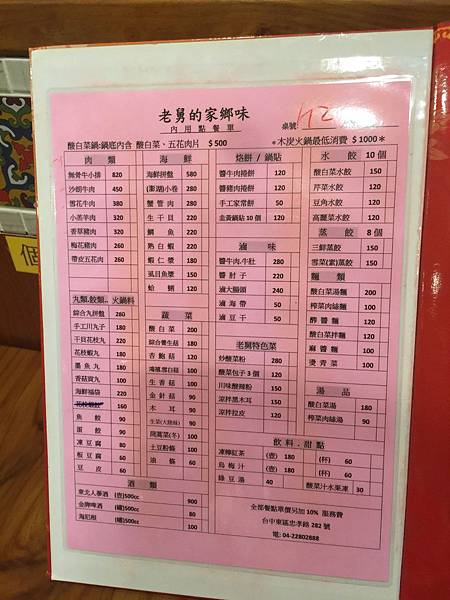 老舅的家鄉味
內用點餐單
桌號
酸白菜鍋:鍋底內含 酸白菜、五花肉片 $500
*木炭火鍋最低消費 $1000*
肉類
無骨牛小排 820
沙朗牛肉 450
雪花牛肉 380
小羔羊肉 260
香草豬肉 320
梅花豬肉 260
帶皮五花肉 260
九類.餃類.. 火鍋料
綜合九拼盤 280
手工川九子 180
干貝花枝丸 220
花枝蝦丸 180
墨魚丸 180
香菇貢丸 180
海鮮福袋 220
160
魚餃 90
蛋餃 90
凍豆腐 60
板豆腐 60
豆皮 60
海鮮
海鮮拼盤 580
(澎湖)小卷 280
蟹管肉 280
生干貝 280
鯛魚 220
熟白蝦 220
蝦仁漿 180
虱目魚漿 150
蛤蜊 120
蔬菜
酸白菜 200
綜合養生菇 180
香鮑菇 120
鴻禧.雪白菇 120
生香菇 120
金針菇 90
木耳 90
生菜(大陸妹) 90
茼蒿菜(冬) 100
土豆粉條 100
油條 60
烙餅 / 鍋貼
醬牛肉捲餅 120
醬豬肉捲餅 120
手工家常餅 50
韭黃鍋貼 10 個 120
滷味
醬牛肉.牛肚 280
醬肘子 220
滷大腸頭 240
滷海帶 50
滷豆干 50
老舅特色菜
炒酸菜粉 280
酸菜包子 3 個 120
川味酸辣粉 150
涼拌黑木耳 150
涼拌拉皮 120
水餃 10個
酸白菜水餃 150
芹菜水餃 120
豆角水餃 120
高麗菜水餃 120
蒸餃 8個
三鮮蒸餃 150
雪菜(素)蒸餃 150
麵類
酸白菜湯麵 200
榨菜肉絲麵 100
酢醬麵 100
酸白菜拌麵 120
麻醬麵 100
燙青菜 100
湯品
酸白菜湯 180
榨菜肉絲湯 90
飲料.甜點
凍檸紅茶 (壺) 180 (杯) 60
烏梅汁 (壺) 180 (杯) 60
綠豆湯 40
酸菜汁水果凍 30
酒類
東北人蔘酒 (壺)500cc 900
金牌啤酒 (罐)500cc 80
海尼根 (罐)500cc 100
全部餐點單價另加 10% 服務費
台中市東區忠孝路 282 號
電: 04-22802888
個